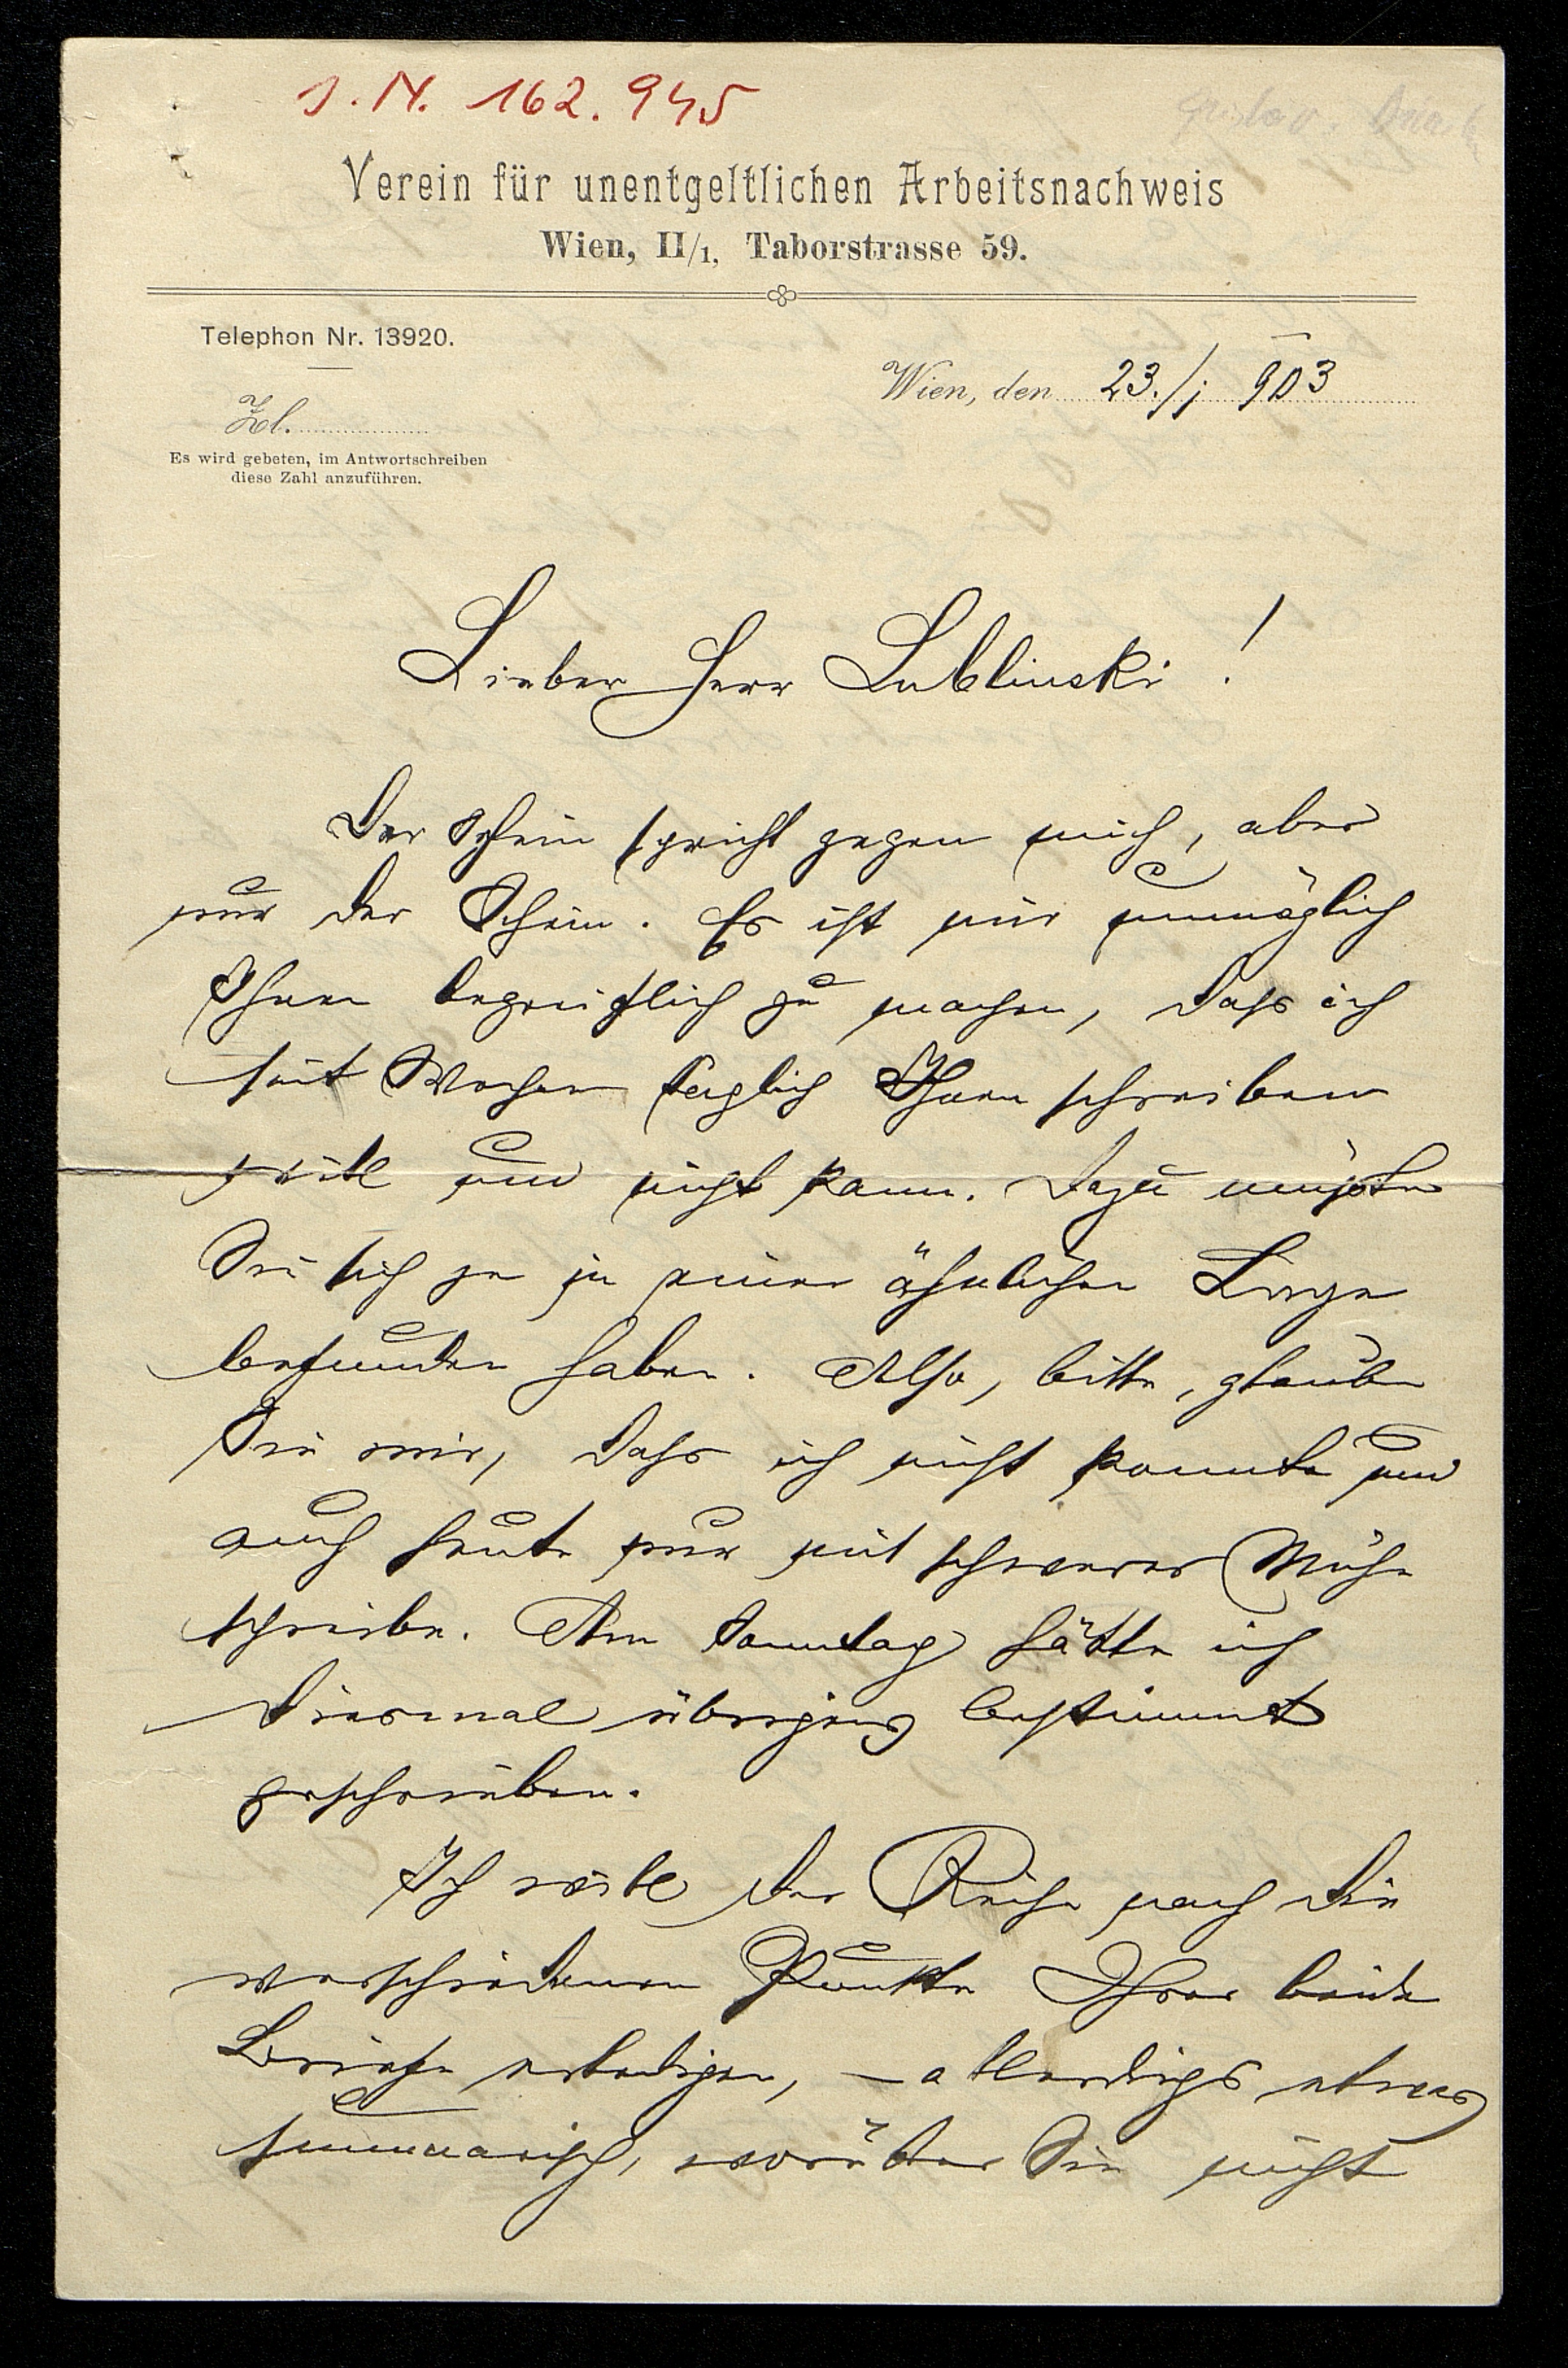 J. N. 162.945
Verein für unentgeltlichen Arbeitsnachweis
Wien, II/1, Taborstrasse 59.
Telephon Nr. 13920.
Wien, den 23./1. 903
Zl.
Es wird gebeten, im Antwortschreiben
diese Zahl anzuführen.
Lieber Herr Lublinski!
Der Schein spricht gegen mich, aber
nur der Schein. Es ist mir unmöglich
Ihnen begreiflich zu machen, dass ich
seit Wochen täglich Ihnen schreiben
will und nicht kann. Dazu müssten
Sie sich je in einer ähnlichen Lage
befunden haben. Also, bitte, glauben
Sie mir, dass ich nicht konnte und
auch heute nur mit schwerer Mühe
schreibe. Am Sonntag hätte ich
diesmal übrigens bestimmt
geschrieben.
Ich will der Reihe nach die
verschiedenen Punkte Ihrer beiden
Briefe erledigen, – allerdings etwas
summarisch, worüber Sie nicht